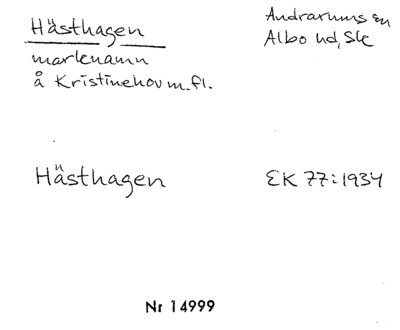 Hästhagen
Andrarums sn
Albo hd, Sk
marknamn
å Kristinehov m.fl.
Hästhagen
EK 77:1934
Nr 14999